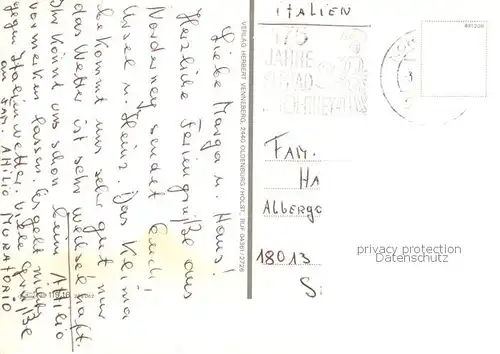 Liebe Marga u. Hans!
Herzliche Feriengrüße aus
Norderney sendet Euch,
Ursel u. Heinz. Das Klima
bekommt uns sehr gut nur
das Wetter ist sehr wechselhaft.
Ihr könnt uns schon beim Attilio
vormerken lassen. Es geht nichts
gegen Italienwetter. Viele Grüße
an FAM. Attilio MURATORIO
VERLAG HERBERT VENNEBERG, 2440 OLDENBURG/HOLST., RUF 04361/2726
ITALIEN
175
JAHRE
FAM.
HA
Albergo
18013
privacy protection
Datenschutz